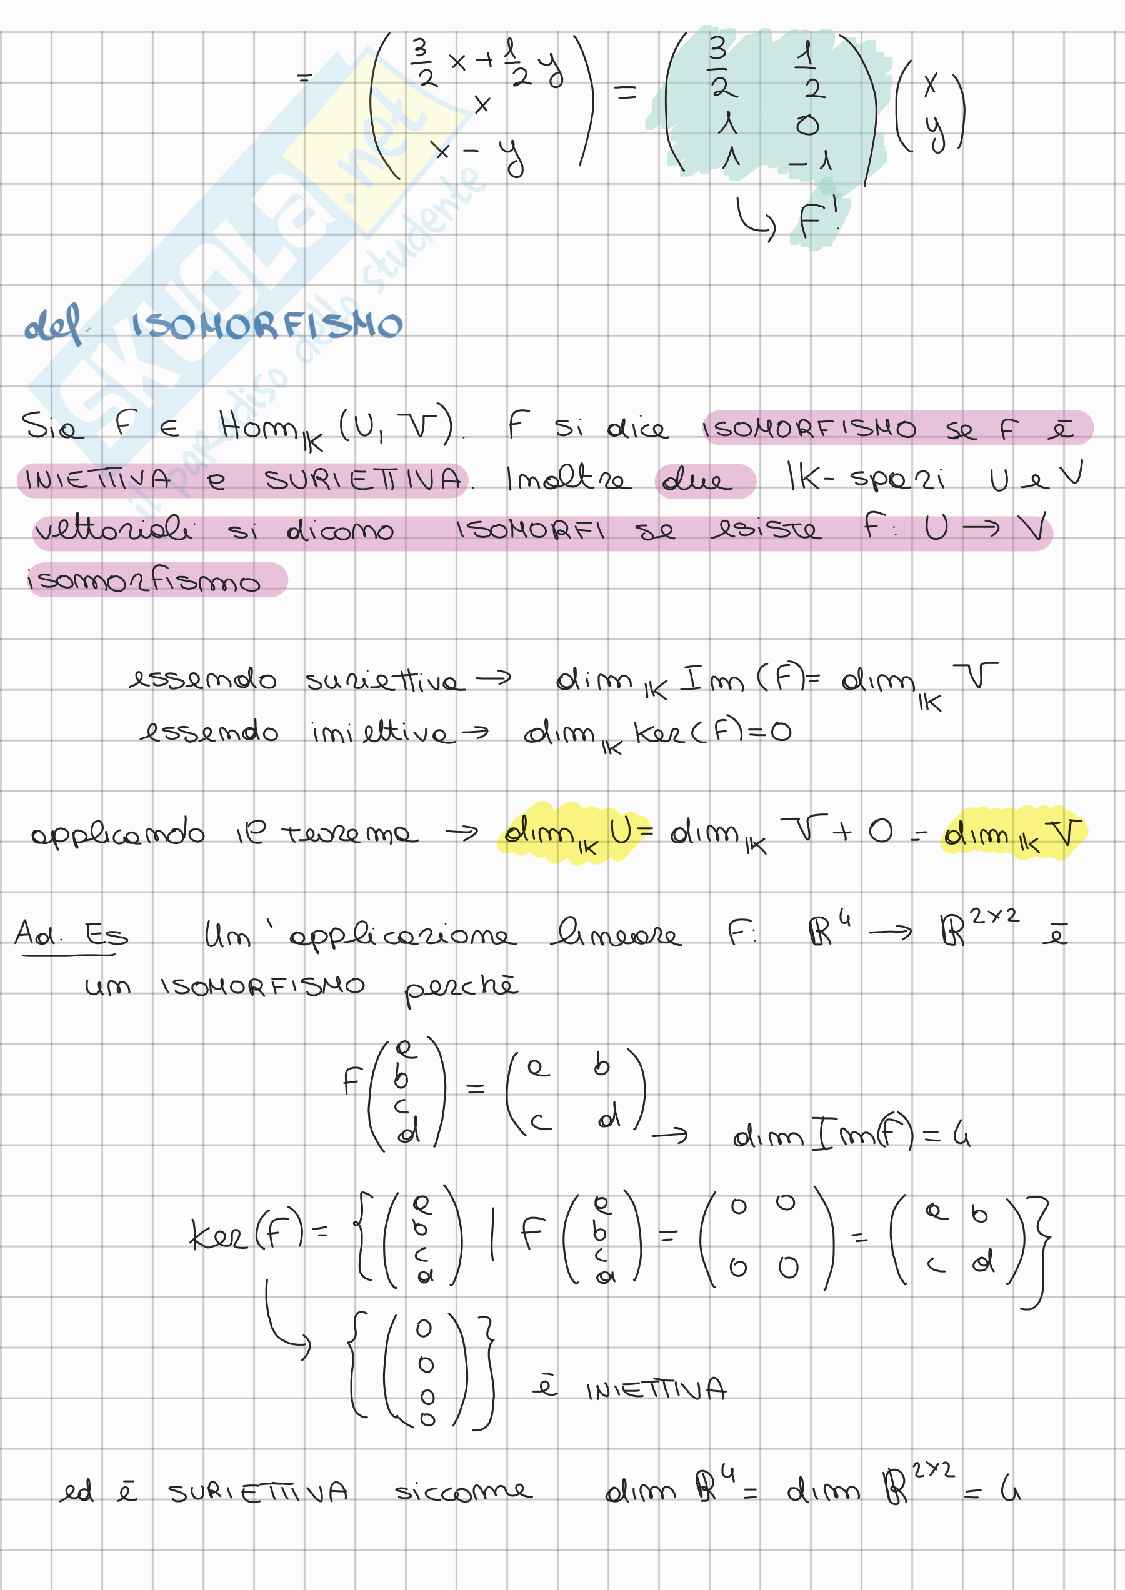 = ( 3/2 x + 1/2 y
x
x - y ) = ( 3/2 1/2
1 0
1 -1 ) ( x
y )
↳ F'
def. ISOMORFISMO
Sia F ∈ Hom_IK (U, V). F si dice ISOMORFISMO se F è
INIETTIVA e SURIETTIVA. Inoltre due IK-spazi U e V
vettoriali si dicono ISOMORFI se esiste F: U → V
isomorfismo
essendo suriettiva → dim_IK Im (F) = dim_IK V
essendo iniettiva → dim_IK Ker(F) = 0
applicando il teorema → dim_IK U = dim_IK V + 0 = dim_IK V
Ad. Es Un'applicazione lineare F: ℝ⁴ → ℝ²ˣ² è
un ISOMORFISMO perchè
F ( a
b
c
d ) = ( a b
c d )
→ dim Im(F) = 4
Ker(F) = { ( a
b
c
d ) | F ( a
b
c
d ) = ( 0 0
0 0 ) = ( a b
c d ) }
↳ { ( 0
0
0
0 ) } è INIETTIVA
ed è SURIETTIVA siccome dim ℝ⁴ = dim ℝ²ˣ² = 4
SKUOLA.net
il paradiso dello studente